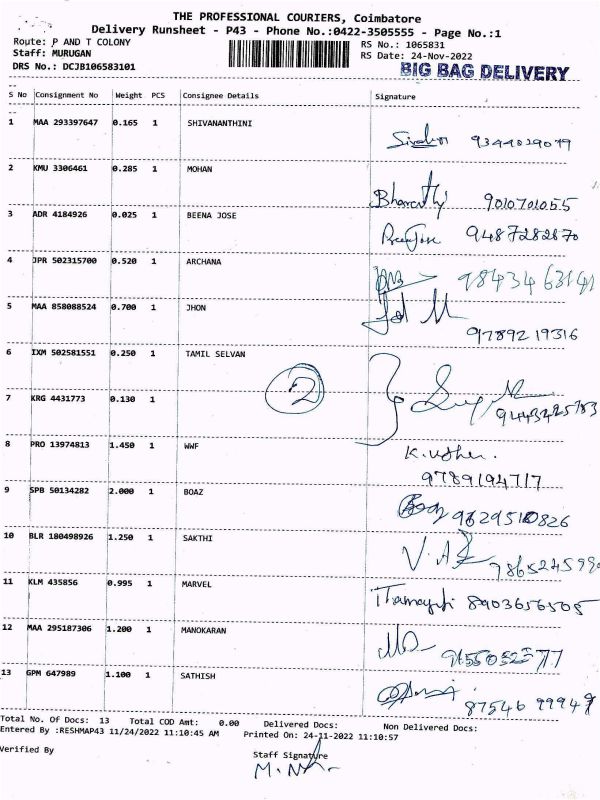 THE PROFESSIONAL COURIERS, Coimbatore
Delivery Runsheet - P43 - Phone No.:0422-3505555 - Page No.:1
Route: P AND T COLONY RS No.: 1065831
Staff: MURUGAN RS Date: 24-Nov-2022
DRS No.: DCJB106583101 BIG BAG DELIVERY
S No Consignment No Weight PCS Consignee Details Signature
1 MAA 293397647 0.165 1 SHIVANANTHINI
2 KMU 3306461 0.285 1 MOHAN
Bharathy 9010701055
3 ADR 4184926 0.025 1 BEENA JOSE
9487282870
4 JPR 502315700 0.520 1 ARCHANA
5 MAA 858088524 0.700 1 JHON
9789219316
6 IXM 502581551 0.250 1 TAMIL SELVAN
2
7 KRG 4431773 0.130 1
8 PRO 13974813 1.450 1 WWF
K. Usha.
9789194717
9 SPB 50134282 2.000 1 BOAZ
9629510826
10 BLR 180498926 1.250 1 SAKTHI
11 KLM 435856 0.995 1 MARVEL
8903656505
12 MAA 295187306 1.200 1 MANOKARAN
13 GPM 647989 1.100 1 SATHISH
Total No. Of Docs: 13 Total COD Amt: 0.00 Delivered Docs: Non Delivered Docs:
Entered By :RESHMAP43 11/24/2022 11:10:45 AM Printed On: 24-11-2022 11:10:57
Verified By Staff Signature